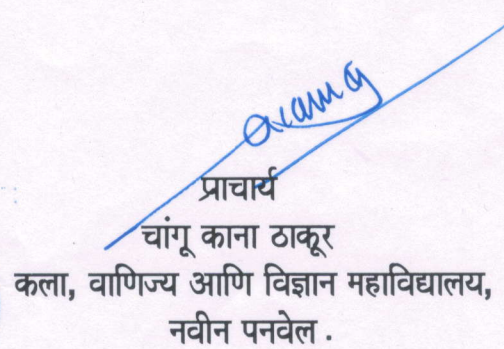 प्राचार्य
चांगू काना ठाकूर
कला, वाणिज्य आणि विज्ञान महाविद्यालय,
नवीन पनवेल .